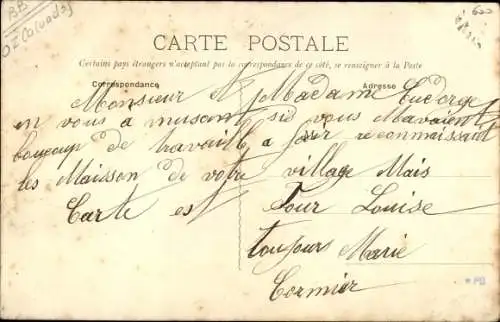 CARTE POSTALE
Certains pays étrangers n'acceptant pas la correspondance de ce côté, se renseigner à la Poste
Correspondance
Adresse
Monsieur Madame
en vous a musom si vous
boucoup de travaill a reconnaissant
les Maisson de votre village Mais
Carte est Pour Louise
toujours Marie
Cormier